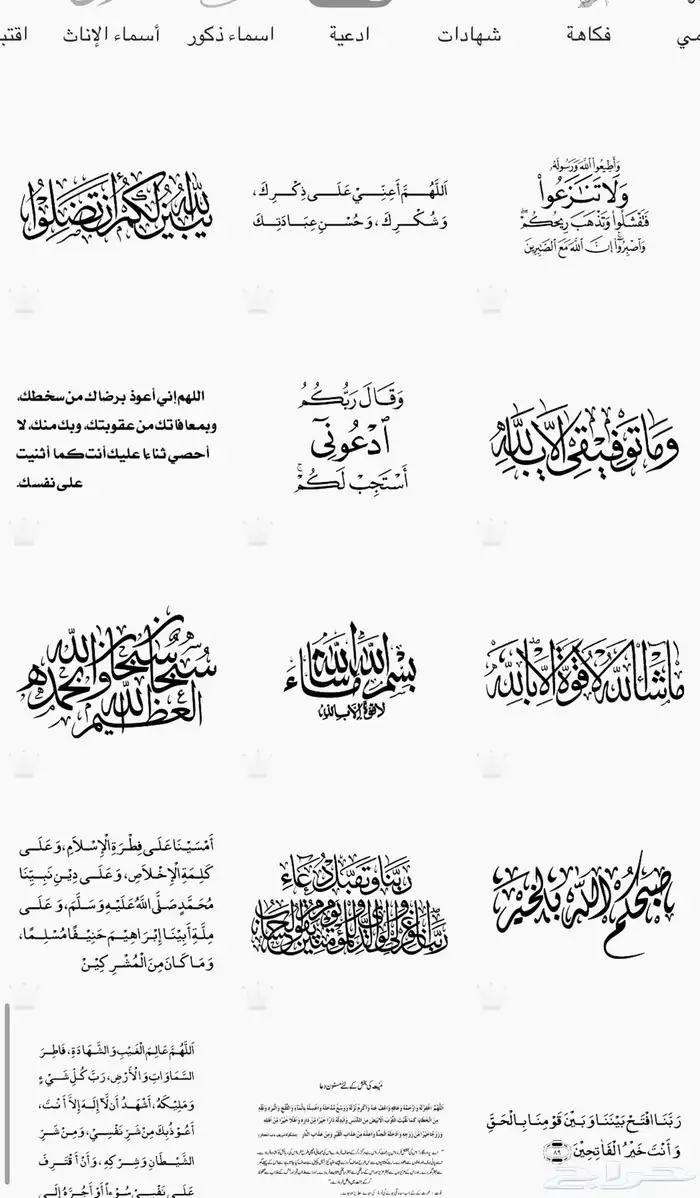 مي
فكاهة
شهادات
ادعية
اسماء ذكور
أسماء الإناث
اقتب
وَأَطِيعُوا اللَّهَ وَرَسُولَهُ
وَلَا تَنَازَعُوا
فَتَفْشَلُوا وَتَذْهَبَ رِيحُكُمْ ۖ
وَاصْبِرُوا ۚ إِنَّ اللَّهَ مَعَ الصَّابِرِينَ
اَللَّهُمَّ أَعِنِّي عَلَى ذِكْرِكَ،
وَشُكْرِكَ، وَحُسْنِ عِبَادَتِكَ
يبين الله لكم أن تضلوا
وما توفيقي إلا بالله
وَقَالَ رَبُّكُمُ
ٱدْعُونِيٓ
أَسْتَجِبْ لَكُمْ ۚ
اللهم إني أعوذ برضاك من سخطك،
وبمعافاتك من عقوبتك، وبك منك، لا
أحصي ثناءً عليك أنت كما أثنيت
على نفسك.
ما شاء الله لا قوة إلا بالله
بسم الله ما شاء الله
لا قوة إلا بالله
سبحان الله وبحمده سبحان الله
العظيم
صبحكم الله بالخير
ربنا وتقبل دعاء
ربنا اغفر لي ولوالدي وللمؤمنين يوم يقوم الحساب
أَمْسَيْنَا عَلَى فِطْرَةِ الْإِسْلَامِ، وَعَلَى
كَلِمَةِ الْإِخْلَاصِ، وَعَلَى دِيْنِ نَبِيِّنَا
مُحَمَّدٍ صَلَّى اللَّهُ عَلَيْهِ وَسَلَّمَ، وَعَلَى
مِلَّةِ أَبِيْنَا إِبْرَاهِيْمَ حَنِيْفًا مُسْلِمًا،
وَمَا كَانَ مِنَ الْمُشْرِكِيْنَ
رَبَّنَا افْتَحْ بَيْنَنَا وَبَيْنَ قَوْمِنَا بِالْحَقِّ
وَأَنتَ خَيْرُ الْفَاتِحِينَ ٨٩
میت کی بخشش کے لئے مسنون دعا
اَللَّهُمَّ عَالِمَ الْغَيْبِ وَالشَّهَادَةِ، فَاطِرَ
السَّمَاوَاتِ وَالْأَرْضِ، رَبَّ كُلِّ شَيْءٍ
وَمَلِيْكَهُ، أَشْهَدُ أَنْ لَّا إِلَهَ إِلَّا أَنْتَ،
أَعُوْذُ بِكَ مِنْ شَرِّ نَفْسِيْ، وَمِنْ شَرِّ
الشَّيْطَانِ وَشِرْكِهِ، وَأَنْ أَقْتَرِفَ
عَلَى نَفْسِيْ سُوْءًا أَوْ أَجُرَّهُ إِلَى
حراج